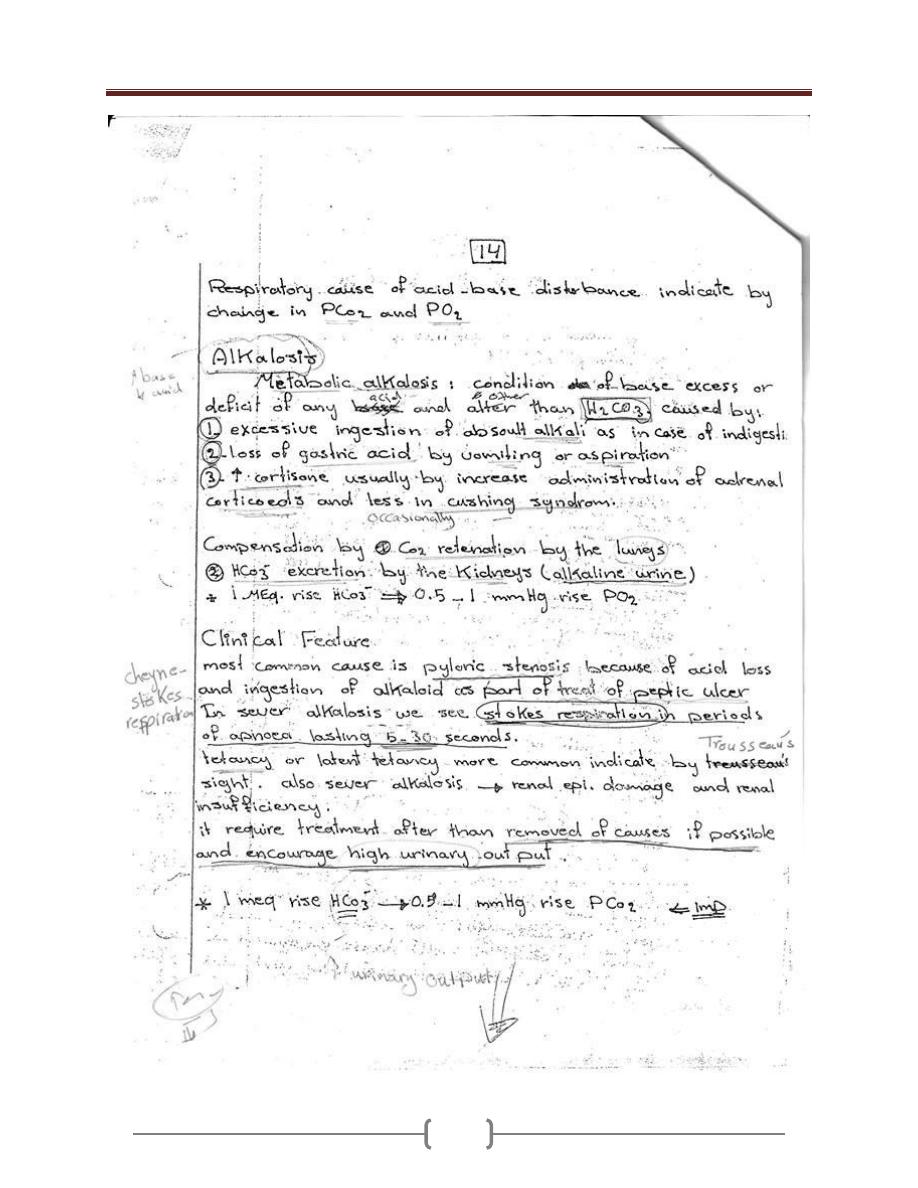 14
Respiratory cause of acid-base disterbance indicate by
change in PCo2 and PO2
Alkalosis
↑ base
↓ acid
Metabolic alkalosis : condition of base excess or
acid other
deficit of any base and after than H2CO3 caused by:
1 excessive ingestion of absoult alkali as in case of indigesti
2- loss of gastric acid by vomiting or aspiration
3- ↑ cortisone usually by increase administration of adrenal
corticoeds and less in cushing syndrom.
occasionally
Compensation by 1 Co2 retenation by the lungs
2 HCo3- excretion by the Kidneys (alkaline urine)
* 1 MEq. rise HCo3- ⇒ 0.5-1 mmHg rise PO2
Clinical Feature
most common cause is pyloric stenosis because of acid loss
cheyne-
stokes
respiraton
and ingestion of alkaloid as part of treat of peptic ulcer
In sever alkalosis we see stokes respiration in periods
of apnoea lasting 5-30 seconds.
Trousseau's
tetancy or latent tetancy more common indicate by treusseau's
sight. also sever alkalosis → renal epi. damage and renal
insufficiency.
it require treatment after than removed of causes if possible
and encourage high urinary out put.
* 1 meq rise HCo3- → 0.5-1 mmHg rise PCo2 ⇐ Imp
↑ urinary output